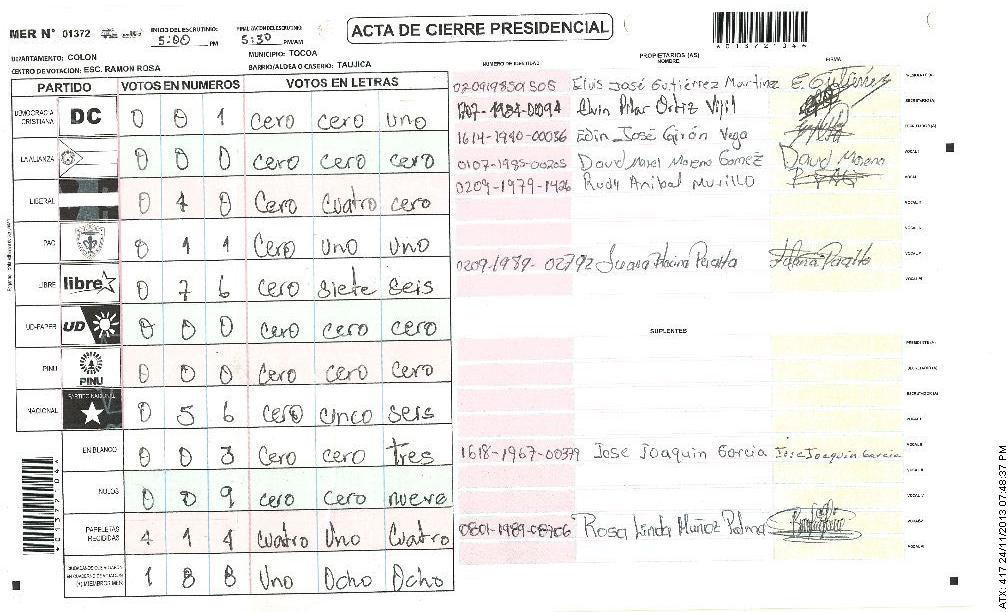 MER N° 01372
INICIO DEL ESCRUTINIO: 5:00 PM
5:30 PM/AM
ACTA DE CIERRE PRESIDENCIAL
DEPARTAMENTO: COLON
MUNICIPIO: TOCOA
CENTRO DE VOTACION: ESC. RAMON ROSA
BARRIO/ALDEA O CASERIO: TAUJICA
NUMERO DE IDENTIDAD PROPIETARIOS (AS) NOMBRE FIRMA
PARTIDO VOTOS EN NUMEROS VOTOS EN LETRAS
DEMOCRACIA CRISTIANA DC 0 0 1 cero cero uno
LA ALIANZA 0 0 0 cero cero cero
LIBERAL 0 4 0 Cero cuatro cero
PAC 0 1 1 Cero uno uno
LIBRE libre 0 7 6 cero siete seis
UD-FAPER UD 0 0 0 cero cero cero
PINU PINU 0 0 0 Cero cero cero
NACIONAL PARTIDO NACIONAL 0 5 6 cero cinco seis
EN BLANCO 0 0 3 cero cero tres
NULOS 0 0 9 cero cero nueve
PAPELETAS RECIBIDAS 4 1 4 Cuatro Uno Cuatro
1 8 8 Uno Ocho Ocho
Elvis José Gutiérrez Martinez E. Gutierrez
Elvin Pilar Ortiz Vijil
1614-1990-00036 Edin José Girón Vega
0107-1985-00205 David Morel Moreno Gomez David Moreno
0209-1979-1426 Rudy Anibal Murillo
0209-1989-02792 Peralta
SUPLENTES
1618-1967-00379 Jose Joaquin Garcia Jose Joaquin Garcia
0801-1989-08706 Rosa Linda Muñoz Palma
ATX: 417 24/11/2013 07:48:37 PM